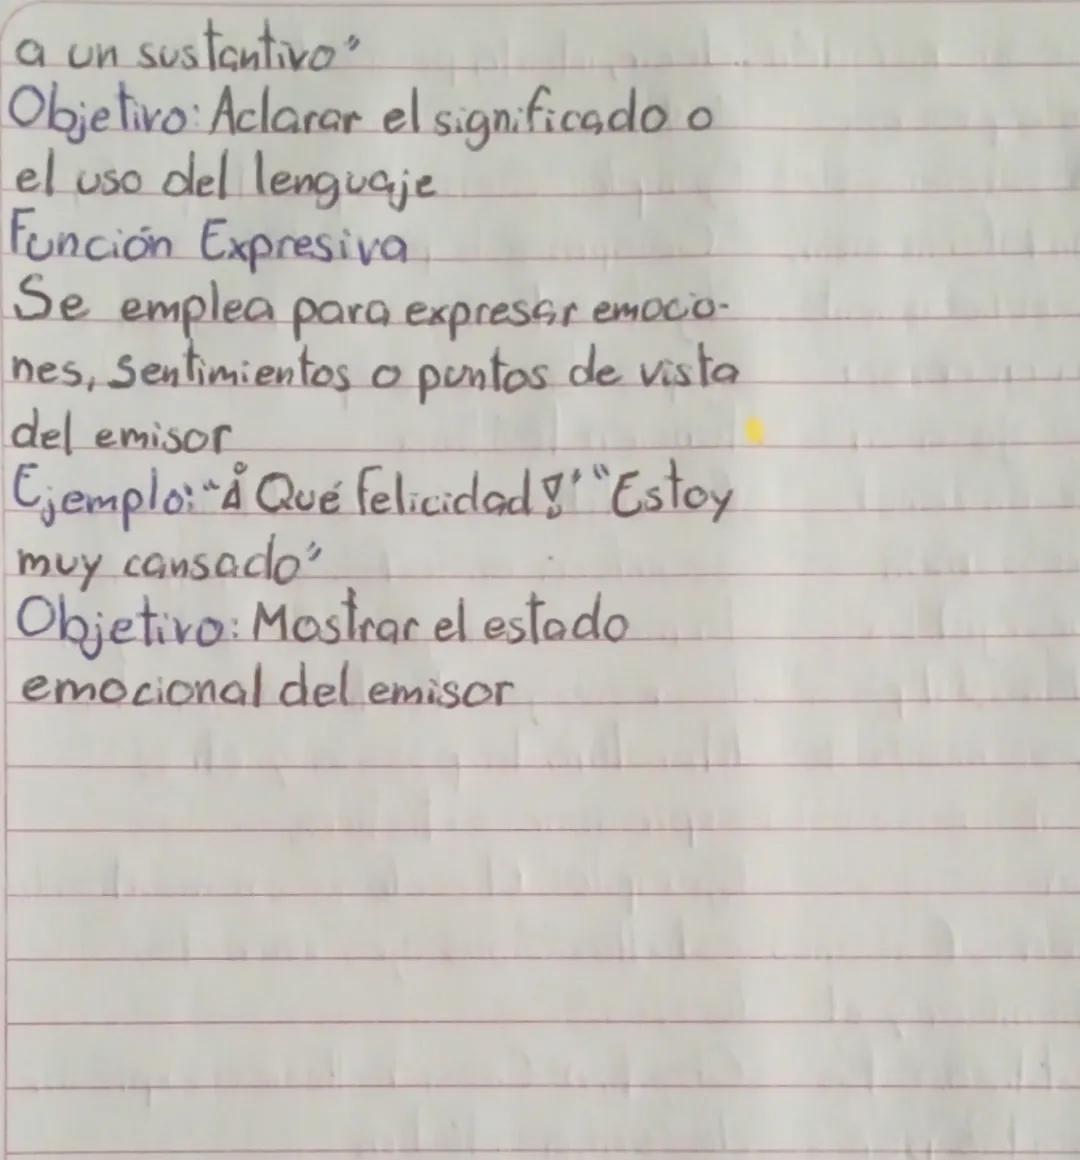 a un sustantivo"
Objetivo: Aclarar el significado o
el uso del lenguaje
Función Expresiva
Se emplea para expresar emocio-
nes, sentimientos o puntos de vista
del emisor
Ejemplo: "¡Qué felicidad!" "Estoy
muy cansado"
Objetivo: Mostrar el estado
emocional del emisor